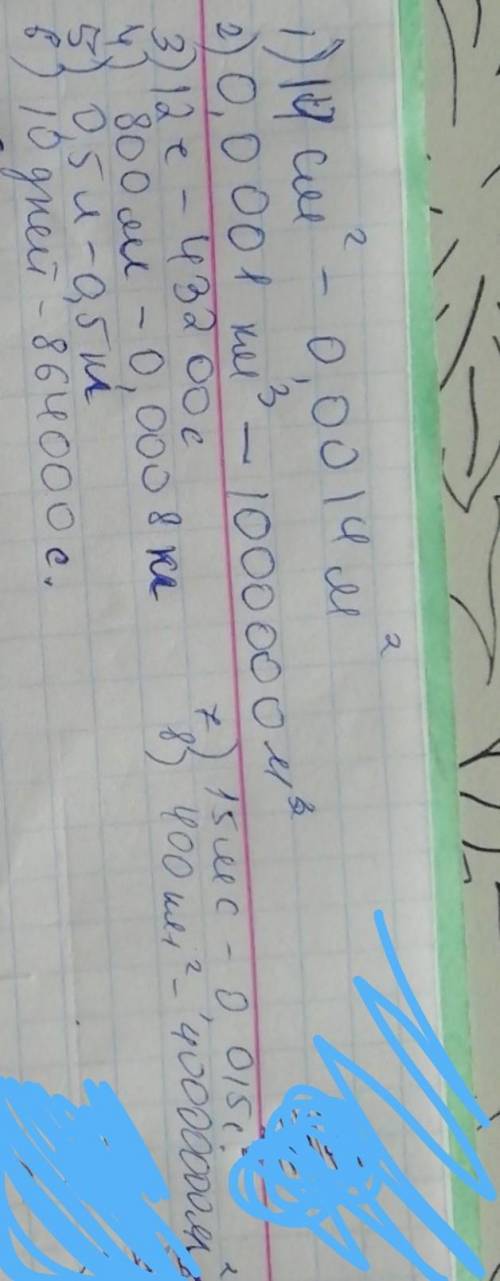 1) 14 см² - 0,0014 м²
2) 0,0001 км³ - 1000000 м³
3) 12 ч - 43200 с
4) 800 мл - 0,0008 кл
5) 0,5 л - 0,5 кг
6) 10 дней - 864000 с.
7) 15 мс - 0,015 с.
8) 400 км² - 400000000 м²